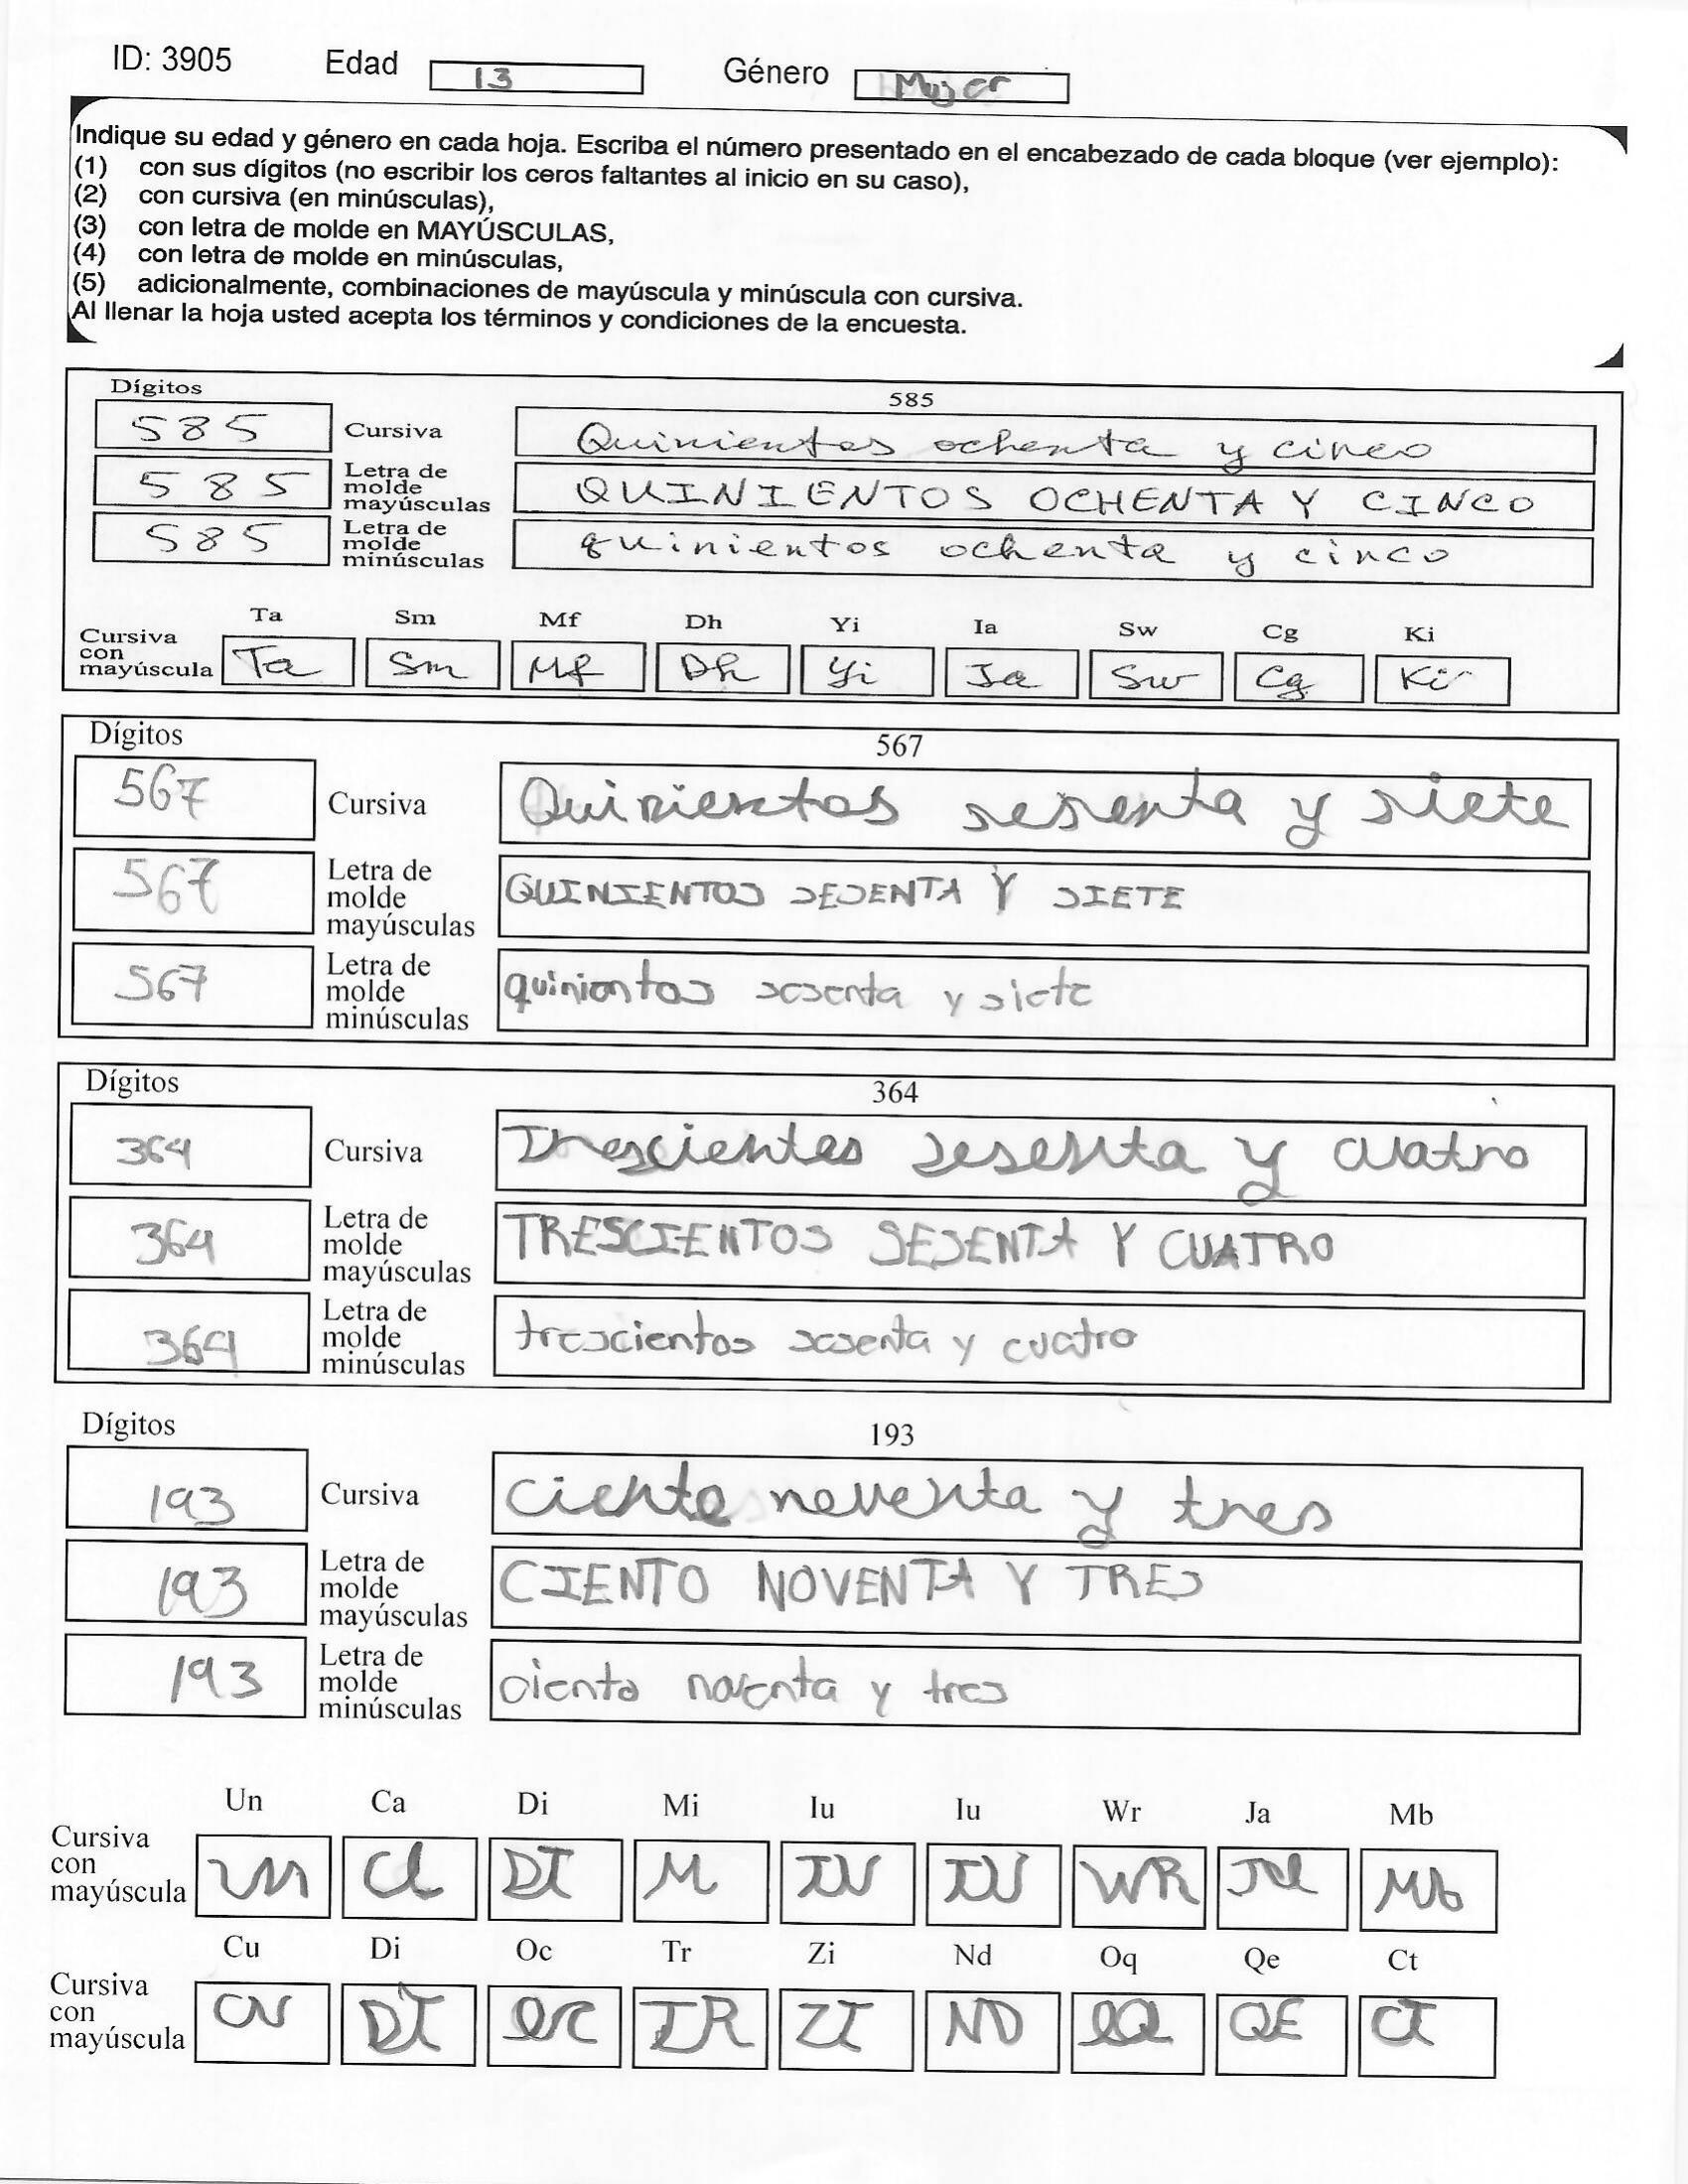 ID: 3905 Edad 13 Género Mujer
Indique su edad y género en cada hoja. Escriba el número presentado en el encabezado de cada bloque (ver ejemplo):
(1) con sus dígitos (no escribir los ceros faltantes al inicio en su caso),
(2) con cursiva (en minúsculas),
(3) con letra de molde en MAYÚSCULAS,
(4) con letra de molde en minúsculas,
(5) adicionalmente, combinaciones de mayúscula y minúscula con cursiva.
Al llenar la hoja usted acepta los términos y condiciones de la encuesta.
Dígitos 585
585 Cursiva Quinientos ochenta y cinco
585 Letra de molde mayúsculas QUINIENTOS OCHENTA Y CINCO
585 Letra de molde minúsculas quinientos ochenta y cinco
Ta Sm Mf Dh Yi Ia Sw Cg Ki
Cursiva con mayúscula Ta Sm Mf Dh Yi Ia Sw Cg Ki
Dígitos 567
567 Cursiva Quinientos sesenta y siete
567 Letra de molde mayúsculas QUINIENTOS SESENTA Y SIETE
567 Letra de molde minúsculas quinientos sesenta y siete
Dígitos 364
364 Cursiva Trescientos sesenta y cuatro
364 Letra de molde mayúsculas TRESCIENTOS SESENTA Y CUATRO
364 Letra de molde minúsculas trescientos sesenta y cuatro
Dígitos 193
193 Cursiva ciento noventa y tres
193 Letra de molde mayúsculas CIENTO NOVENTA Y TRES
193 Letra de molde minúsculas ciento noventa y tres
Un Ca Di Mi Iu Iu Wr Ja Mb
Cursiva con mayúscula Un Ca DI M IU IU WR Ja Mb
Cu Di Oc Tr Zi Nd Oq Qe Ct
Cursiva con mayúscula CU DI OC TR ZI ND OQ QE CT